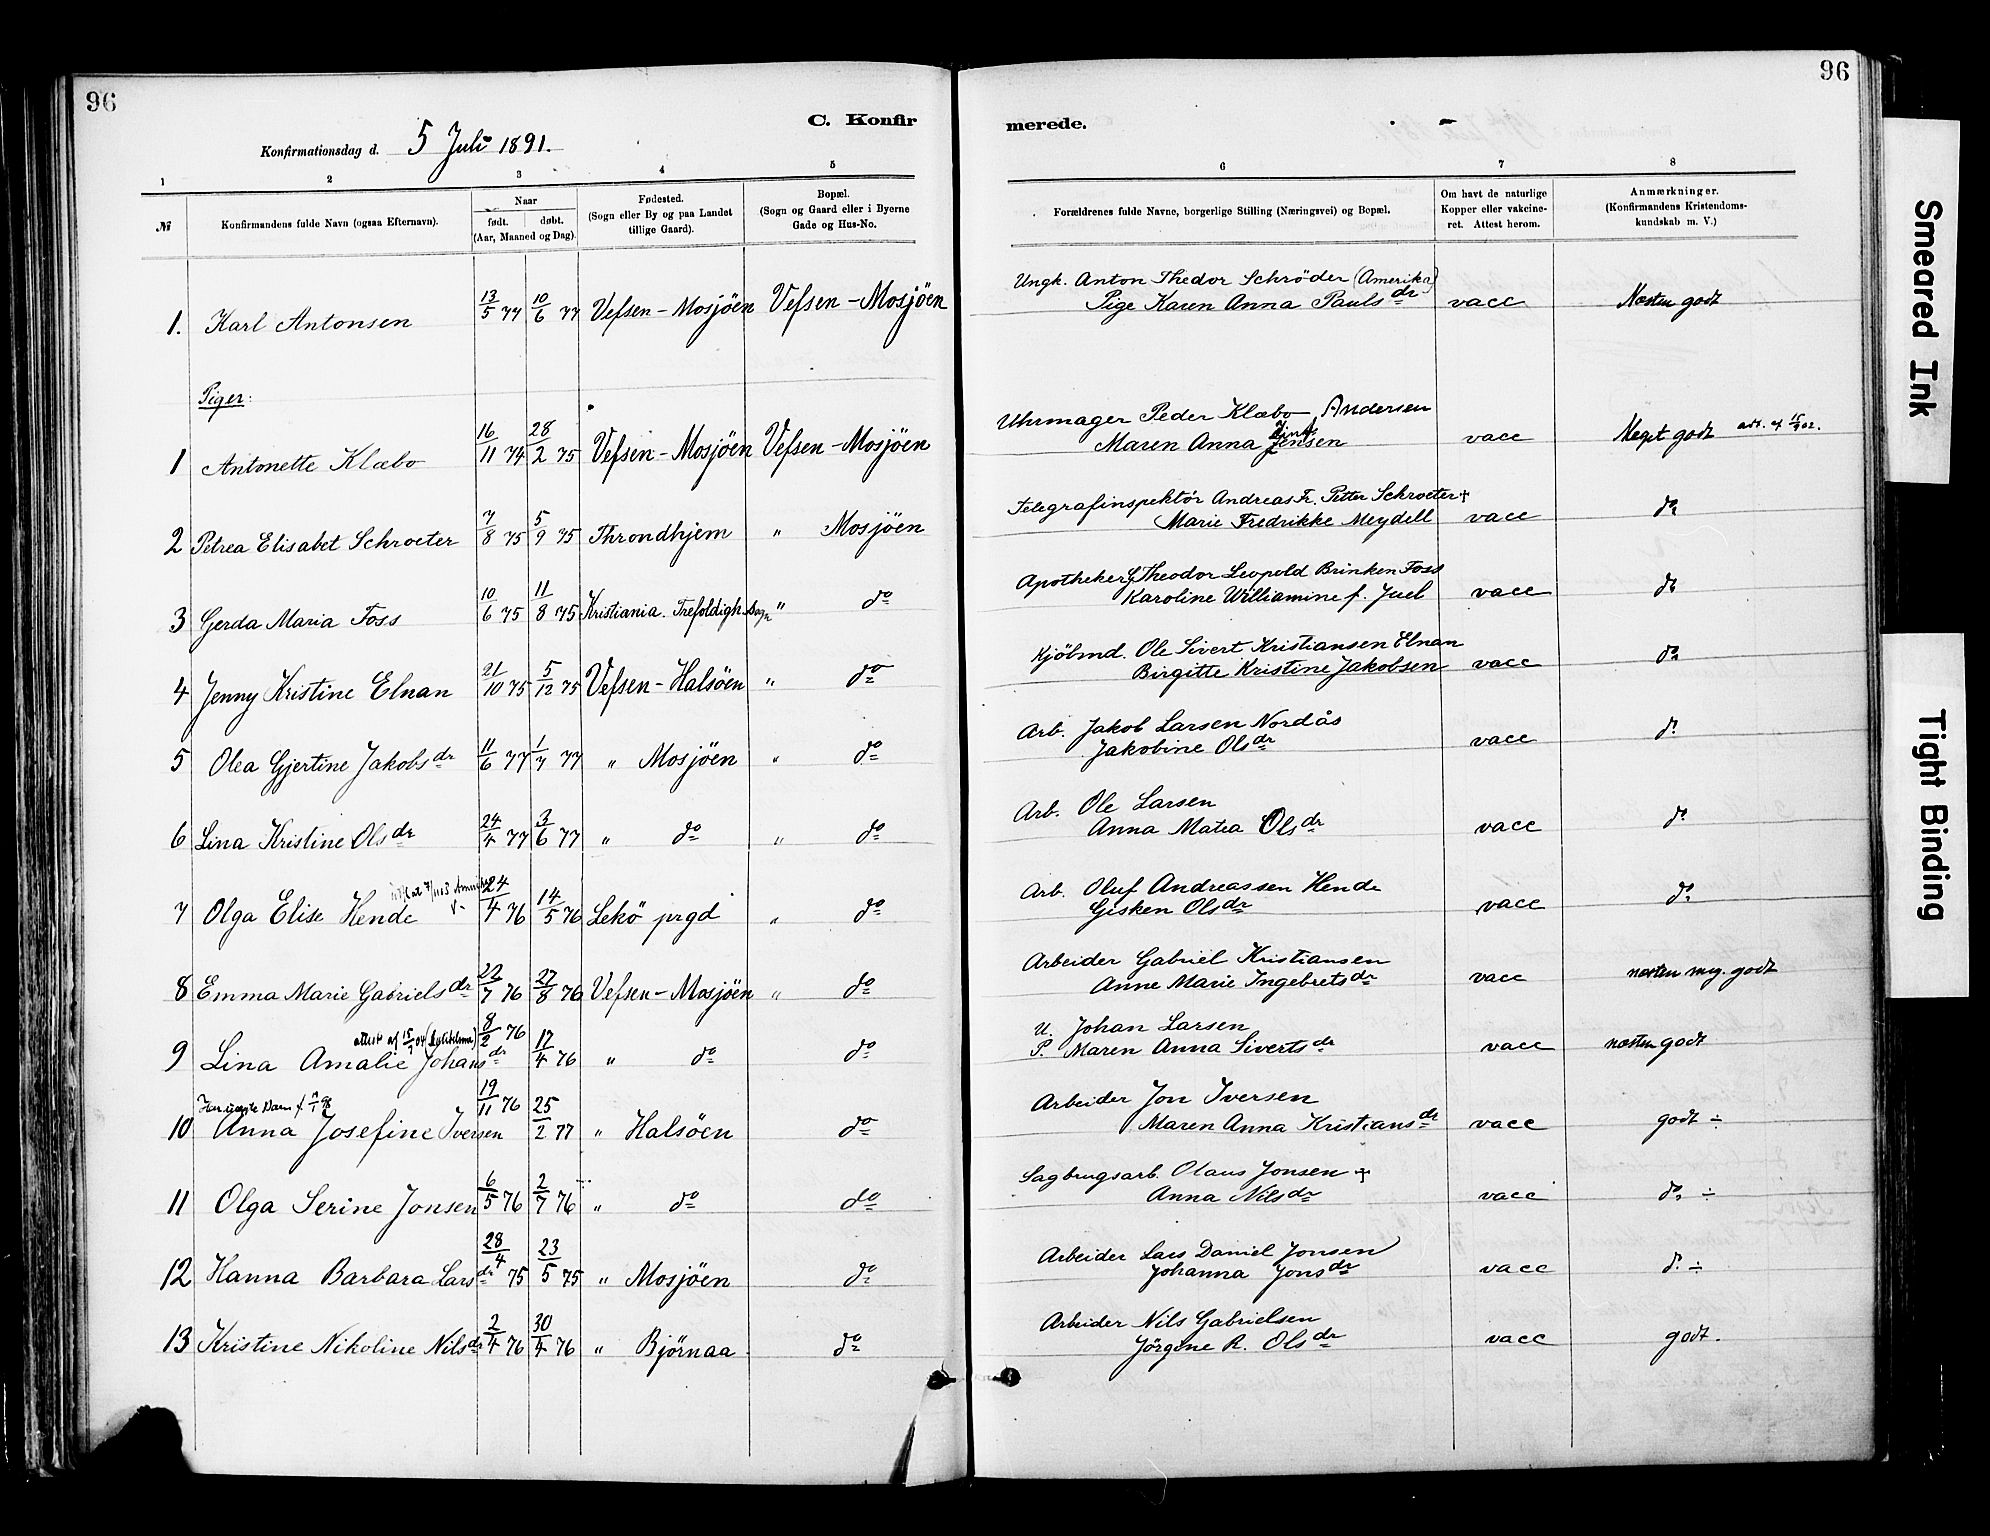 96
96
C. Konfir
merede.
Konfirmationsdag d. 5 Juli 1891.
1 2 3 4 5 6 7 8
№
Konfirmandens fulde Navn (ogsaa Efternavn).
Naar
født. døbt.
(Aar, Maaned og Dag).
Fødested.
(Sogn eller By og paa Landet
tillige Gaard).
Bopæl.
(Sogn og Gaard eller i Byerne
Gade og Hus-No.
Forældrenes fulde Navne, borgerlige Stilling (Næringsvei) og Bopæl.
Om havt de naturlige
Kopper eller vakcine-
ret. Attest herom.
Anmærkninger.
(Konfirmandens Kristendoms-
kundskab m. V.)
Ungk. Anton Thedor Schröder (Amerika)
1. Karl Antonsen 13/5 77 10/6 77 Vefsen-Mosjöen Vefsen-Mosjöen Pige Karen Anna Pauls dr vacc Næsten godt
Piger:
Uhrmager Peder Klæbo Andersen
1 Antonette Klæbo 16/11 74 28/2 75 Vefsen-Mosjöen Vefsen-Mosjöen Maren Anna Jensen vacc Meget godt
Telegrafinspektör Andreas Fr. Petter Schroeter +
2 Petrea Elisabet Schroeter 7/8 75 5/9 75 Throndhjem " Mosjöen Marie Fredrikke Meydell vacc do
Apotheker G Theodor Leopold Brinken Foss
3 Gerda Maria Foss 10/6 75 11/8 75 Kristiania. Trefoldigh. Sogn " do Karoline Williamine f. Juel vacc do
Kjöbmd. Ole Sivert Kristiansen Elnan
4 Jenny Kristine Elnan 21/10 75 5/12 75 Vefsen-Halsöen " do Birgitte Kristine Jakobsen vacc do
Arb. Jakob Larsen Nordås
5 Olea Gjertine Jakobs dr 11/6 77 1/7 77 " Mosjöen " do Jakobine Ols dr vacc do
Arb. Ole Larsen
6 Lina Kristine Ols dr 24/4 77 3/6 77 " do " do Anna Matea Ols dr vacc do
Arb. Oluf Andreassen Hende
7 Olga Elise Hende 24/4 76 14/5 76 Lekö prgd " do Gisken Ols dr vacc do
Arbeider Gabriel Kristiansen
8 Emma Marie Gabriels dr 22/7 76 27/8 76 Vefsen-Mosjöen " do Anne Marie Ingebrets dr vacc næsten meg. godt
U. Johan Larsen
9 Lina Amalie Johans dr 8/2 76 17/4 76 " do do P. Maren Anna Siverts dr vacc næsten godt
Arbeider Jon Iversen
10 Anna Josefine Iversen 19/11 76 25/2 77 " Halsöen do Maren Anna Kristians dr vacc godt ÷
Sagbrugsarb. Olaus Jonsen +
11 Olga Serine Jonsen 6/5 76 2/7 76 " do do Anna Nils dr vacc do ÷
Arbeider Lars Daniel Jonsen
12 Hanna Barbara Lars dr 28/4 75 23/5 75 " Mosjöen do Johanna Jons dr vacc do ÷
Arbeider Nils Gabrielsen
13 Kristine Nikoline Nils dr 2/4 76 30/4 76 " Bjørnaa do Jörgine R. Ols dr vacc godt.
Smeared Ink
Tight Binding